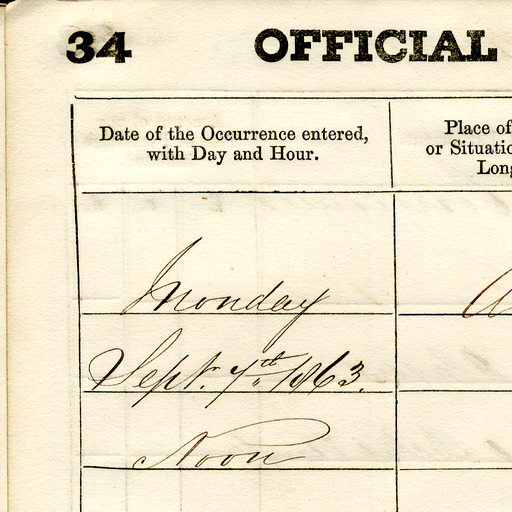 34 OFFICIAL
Date of the Occurrence entered,
with Day and Hour.
Place of
or Situatio
Long
Monday
Sept. 7th. 1863.
Noon